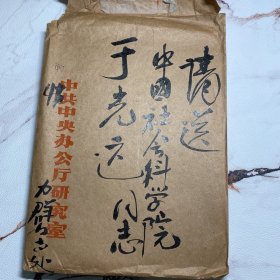 请送
中国社会科学院
于光远同志
中共中央办公厅研究室